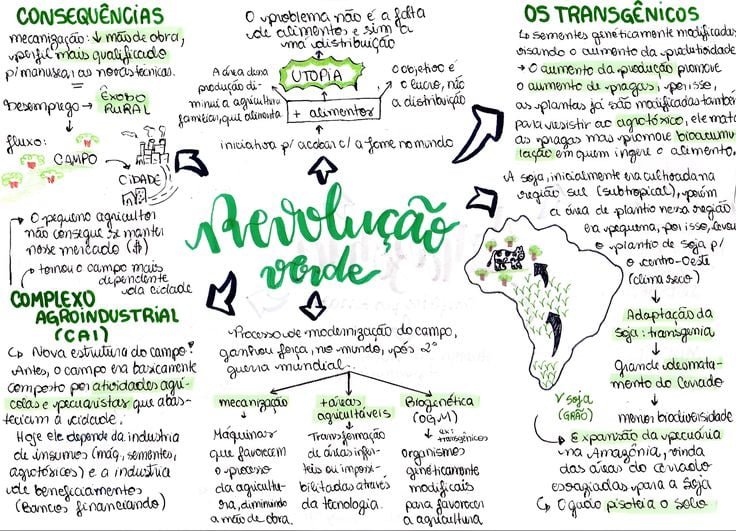 CONSEQUÊNCIAS
mecanização: ↓ mão de obra,
perfil mais qualificado
p/ manusear as novas técnicas.
Desemprego → ÊXODO
RURAL
fluxo:
CAMPO
CIDADE
→ O pequeno agricultor
não consegue se manter
nesse mercado ($)
→ tornou o campo mais
dependente da cidade
COMPLEXO
AGROINDUSTRIAL
(CAI)
↳ Nova estrutura do campo.
Antes, o campo era basicamente
composto por atividades agrí-
colas e pecuaristas que abas-
teciam a cidade.
Hoje ele depende da industria
de insumos (máq, sementes,
agrotóxicos) e a industria
de beneficiamentos
(Bancos financiando)
O problema não é a falta
de alimentos e sim a
má distribuição
UTOPIA
A área dessa
produção di-
minui a agricultura
familiar, que alimenta
+ alimentos
o objetivo é
o lucro, não
a distribuição
iniciativa p/ acabar c/ a fome no mundo
Revolução
verde
Processo de modernização do campo,
ganhou força, no mundo, pós 2ª
guerra mundial.
mecanização
Máquinas
que favorecem
o processo
da agricultu-
ra, diminuindo
a mão de obra.
+ áreas
agricultáveis
Transformação
de áreas infér-
teis ou impossi-
bilitadas através
da tecnologia.
Biogenética
(OGM)
ex:
transgênicos
organismos
geneticamente
modificais
para favorecer
a agricultura
OS TRANSGÊNICOS
↳ sementes geneticamente modificadas
visando o aumento da produtividade
→ O aumento da produção promove
o aumento de pragas, por isso,
as plantas já são modificadas também
para resistir ao agrotóxico, ele mata
as pragas mas promove bioacumu-
lação em quem ingere o alimento.
A soja, inicialmente era cultivada na
região sul (subtropical), porém
a área de plantio nessa região
era pequena, por isso, levou
o plantio de soja p/
o centro-Oeste
(clima seco)
Adaptação da
soja: transgenia
Grande desmata-
mento do Cerrado
menor biodiversidade
soja
(GRÃO)
Expansão da pecuária
na Amazônia, vinda
das áreas do cerrado
↳ O gado pisoteia o solo